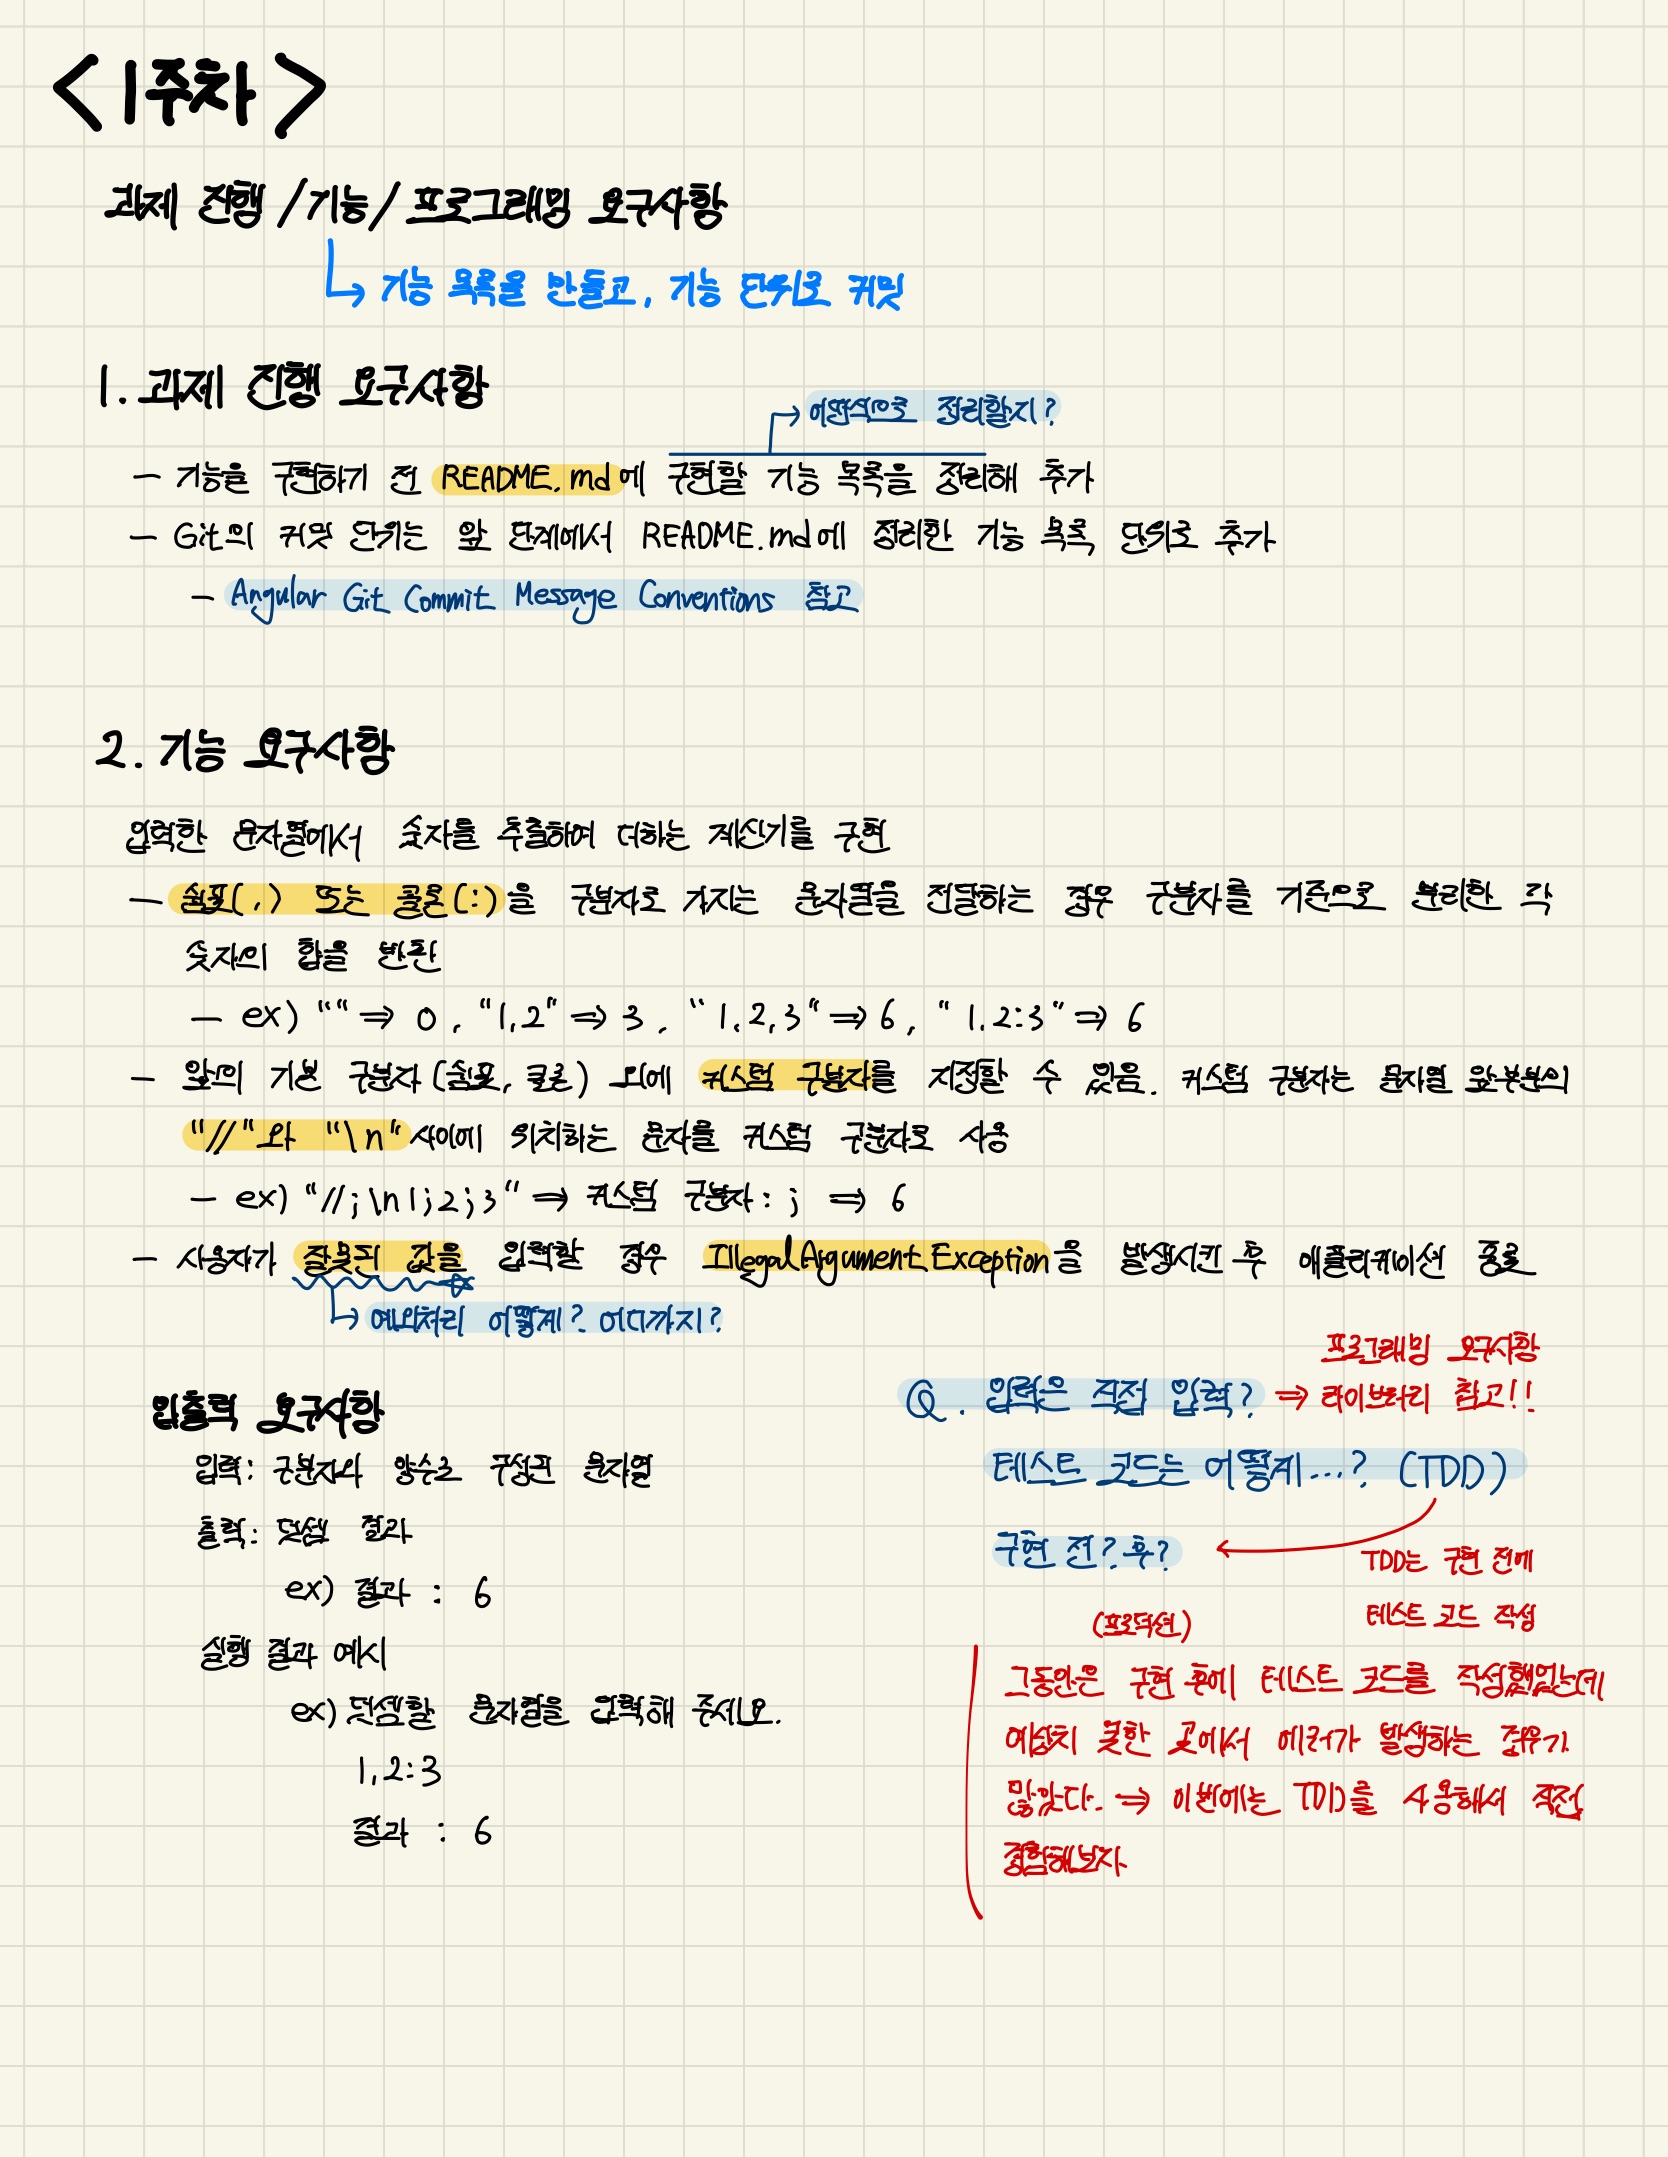 <1주차>
과제 진행 / 기능 / 프로그래밍 요구사항
↳ 기능 목록을 만들고, 기능 단위로 커밋
1. 과제 진행 요구사항
→ 어떤식으로 정리할지?
- 기능을 구현하기 전 README.md에 구현할 기능 목록을 정리해 추가
- Git의 커밋 단위는 앞 단계에서 README.md에 정리한 기능 목록 단위로 추가
- Angular Git Commit Message Conventions 참고
2. 기능 요구사항
입력한 문자열에서 숫자를 추출하여 더하는 계산기를 구현
- 쉼표(,) 또는 콜론(:)을 구분자로 가지는 문자열을 전달하는 경우 구분자를 기준으로 분리한 각
숫자의 합을 반환
- ex) "" ⇒ 0, "1,2" ⇒ 3, "1,2,3" ⇒ 6, "1,2:3" ⇒ 6
- 앞의 기본 구분자(쉼표, 콜론) 외에 커스텀 구분자를 지정할 수 있음. 커스텀 구분자는 문자열 앞부분의
"//"와 "\n" 사이에 위치하는 문자를 커스텀 구분자로 사용
- ex) "//;\n1;2;3" ⇒ 커스텀 구분자 : ; ⇒ 6
- 사용자가 잘못된 값을 입력할 경우 IllegalArgumentException을 발생시킨 후 애플리케이션 종료
↳ 예외처리 어떻게? 어디까지?
입출력 요구사항
입력: 구분자와 양수로 구성된 문자열
출력: 덧셈 결과
ex) 결과 : 6
실행 결과 예시
ex) 덧셈할 문자열을 입력해 주세요.
1,2:3
결과 : 6
프로그래밍 요구사항
Q. 입력은 직접 입력? ⇒ 라이브러리 참고!!
테스트 코드는 어떻게...? (TDD)
구현 전? 후?
TDD는 구현 전에
테스트 코드 작성
(프로덕션)
그동안은 구현 후에 테스트 코드를 작성했었는데
예상치 못한 곳에서 에러가 발생하는 경우가
많았다. ⇒ 이번에는 TDD를 사용해서 직접
경험해보자